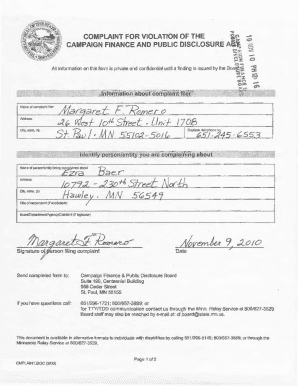 COMPLAINT FOR VIOLATION OF THE
CAMPAIGN FINANCE AND PUBLIC DISCLOSURE ACT
All information on this form is private and confidential until a finding is issued by the Board
Information about complaint filer
Name of complaint filer
Margaret F Romero
Address
26 West 10th Street - Unit 1708
City, state, zip
Daytime telephone no.
St Paul, MN 55102-5016
651-245-6553
Identify person/entity you are complaining about
Name of person/entity being complained about
Ezra Baer
Address
10792 - 230th Street North
City, state, zip
Hawley, MN 56549
Title of respondent (if applicable)
Board/Department/Agency/District # (if legislator)
November 9, 2010
Signature of person filing complaint
Date
Send completed form to:
Campaign Finance & Public Disclosure Board
Suite 190, Centennial Building
658 Cedar Street
St. Paul, MN 55155
If you have questions call:
651/296-1721; 800/657-3889; or
for TTY/TDD communication contact us through the Minn. Relay Service at 800/627-3529
Board staff may also be reached by e-mail at: cf.board@state.mn.us.
This document is available in alternative formats to individuals with disabilities by calling 651/296-5148; 800/657-3889; or through the
Minnesota Relay Service at 800/627-3529.
Page 1 of 2